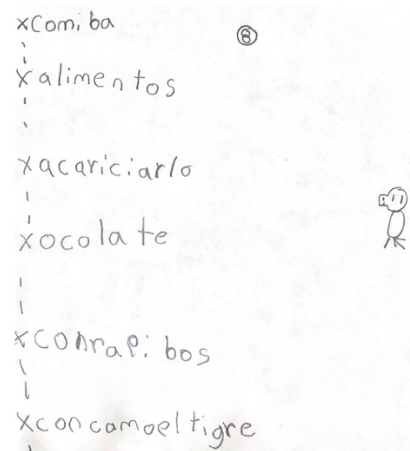 xComiba
⑧
xalimentos
xacariciarlo
xocolate
xconrapibos
xconcamoeltigre